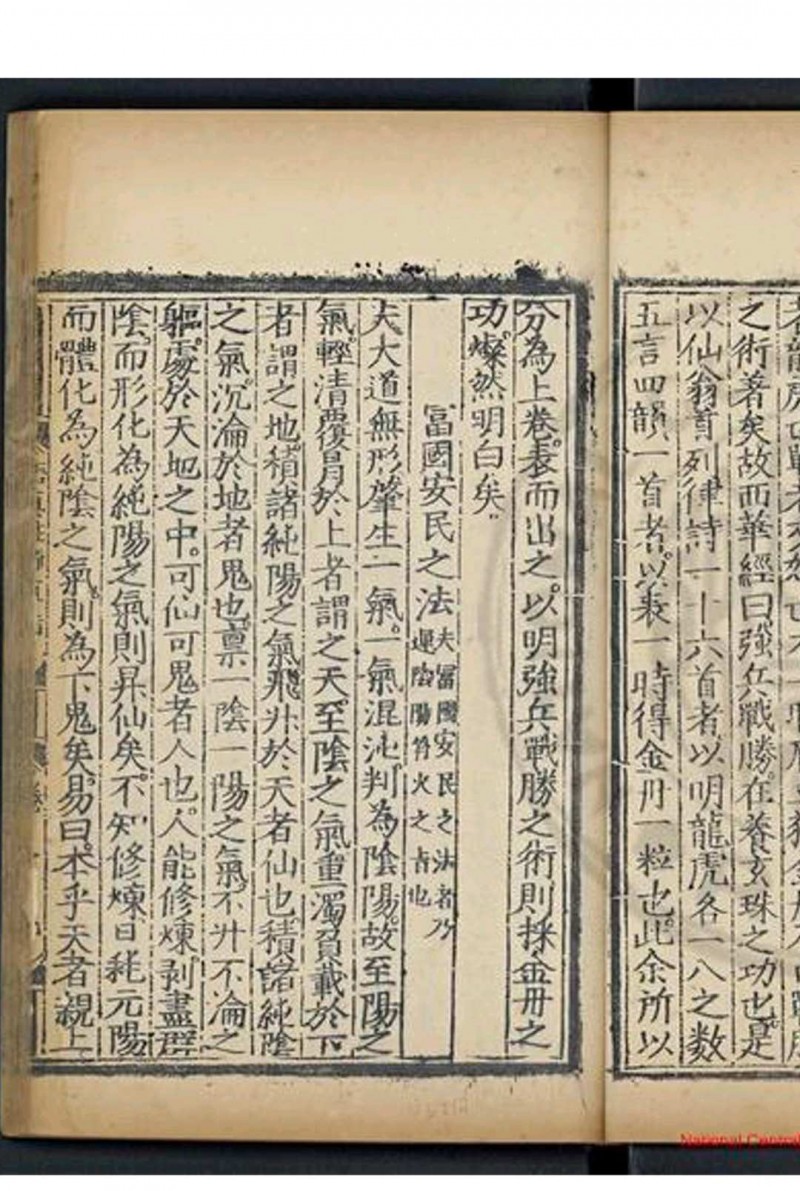 之術著矣故西華經曰強兵戰勝在養玄珠之功也是
以仙翁首列律詩一十六首者以明龍虎各一八之數
五言四韻一首者以表一時得金丹一粒也此余所以
分為上卷表而出之以明強兵戰勝之術則採金丹之
功燦然明白矣
富國安民之法夫富國安民之法者乃
運陰陽符火之旨也
夫大道無形肇生一氣一氣混沌判為陰陽故至陽之
氣輕清覆冒於上者謂之天至陰之氣重濁負載於下
者謂之地積諸純陽之氣飛升於天者仙也積諸純陰
之氣沉淪於地者鬼也稟一陰一陽之氣不升不淪之
軀處於天地之中可仙可鬼者人也人能修煉剥盡群
陰而形化為純陽之氣則昇仙矣不知修煉日耗元陽
而體化為純陰之氣則為下鬼矣易曰本乎天者親上
National Central